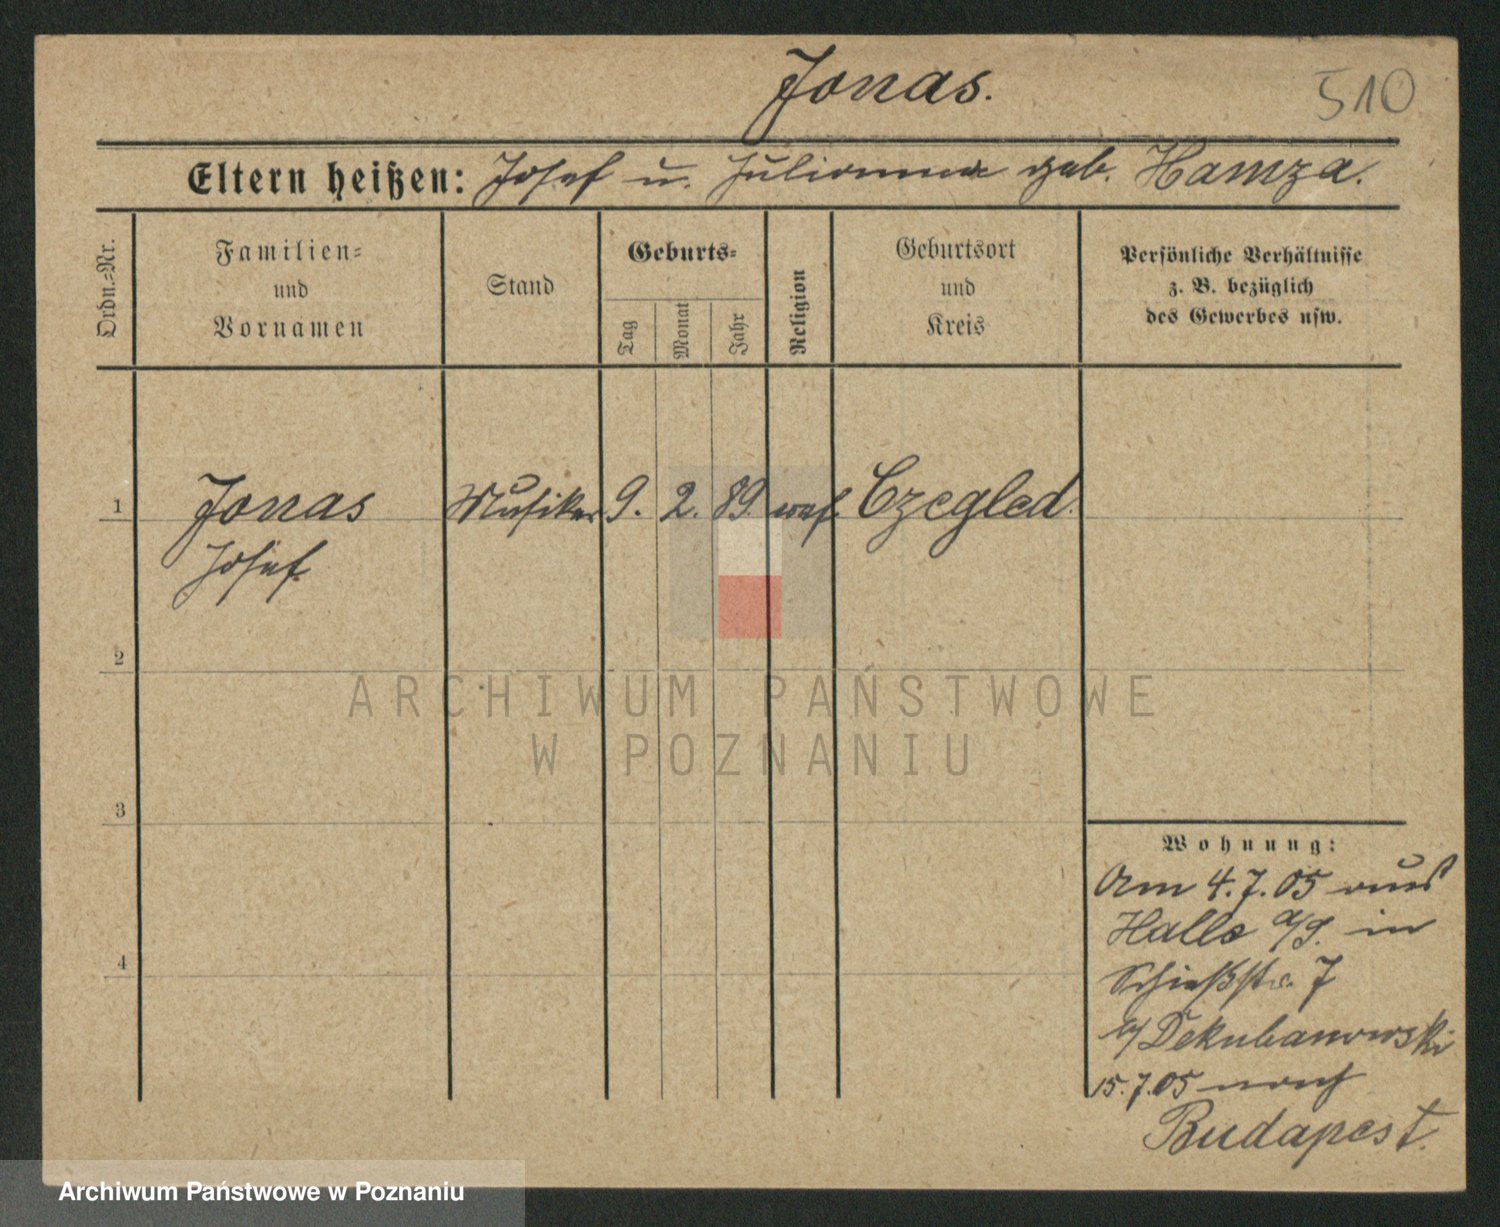 Jonas.
510
Eltern heißen: Josef u. Julianna geb. Hamza.
Ordn.-Nr.
Familien-
und
Vornamen
Stand
Geburts-
Tag
Monat
Jahr
Religion
Geburtsort
und
Kreis
Persönliche Verhältnisse
z. B. bezüglich
des Gewerbes usw.
1
Jonas
Josef
Musiker
9. 2. 89.
ref.
Czegled.
2
3
4
Wohnung:
Am 4.7.05 aus
Halle a/S. in
Schießstr. 7
b/ Dekubanowski
15.7.05 nach
Budapest.
ARCHIWUM PAŃSTWOWE
W POZNANIU
Archiwum Państwowe w Poznaniu